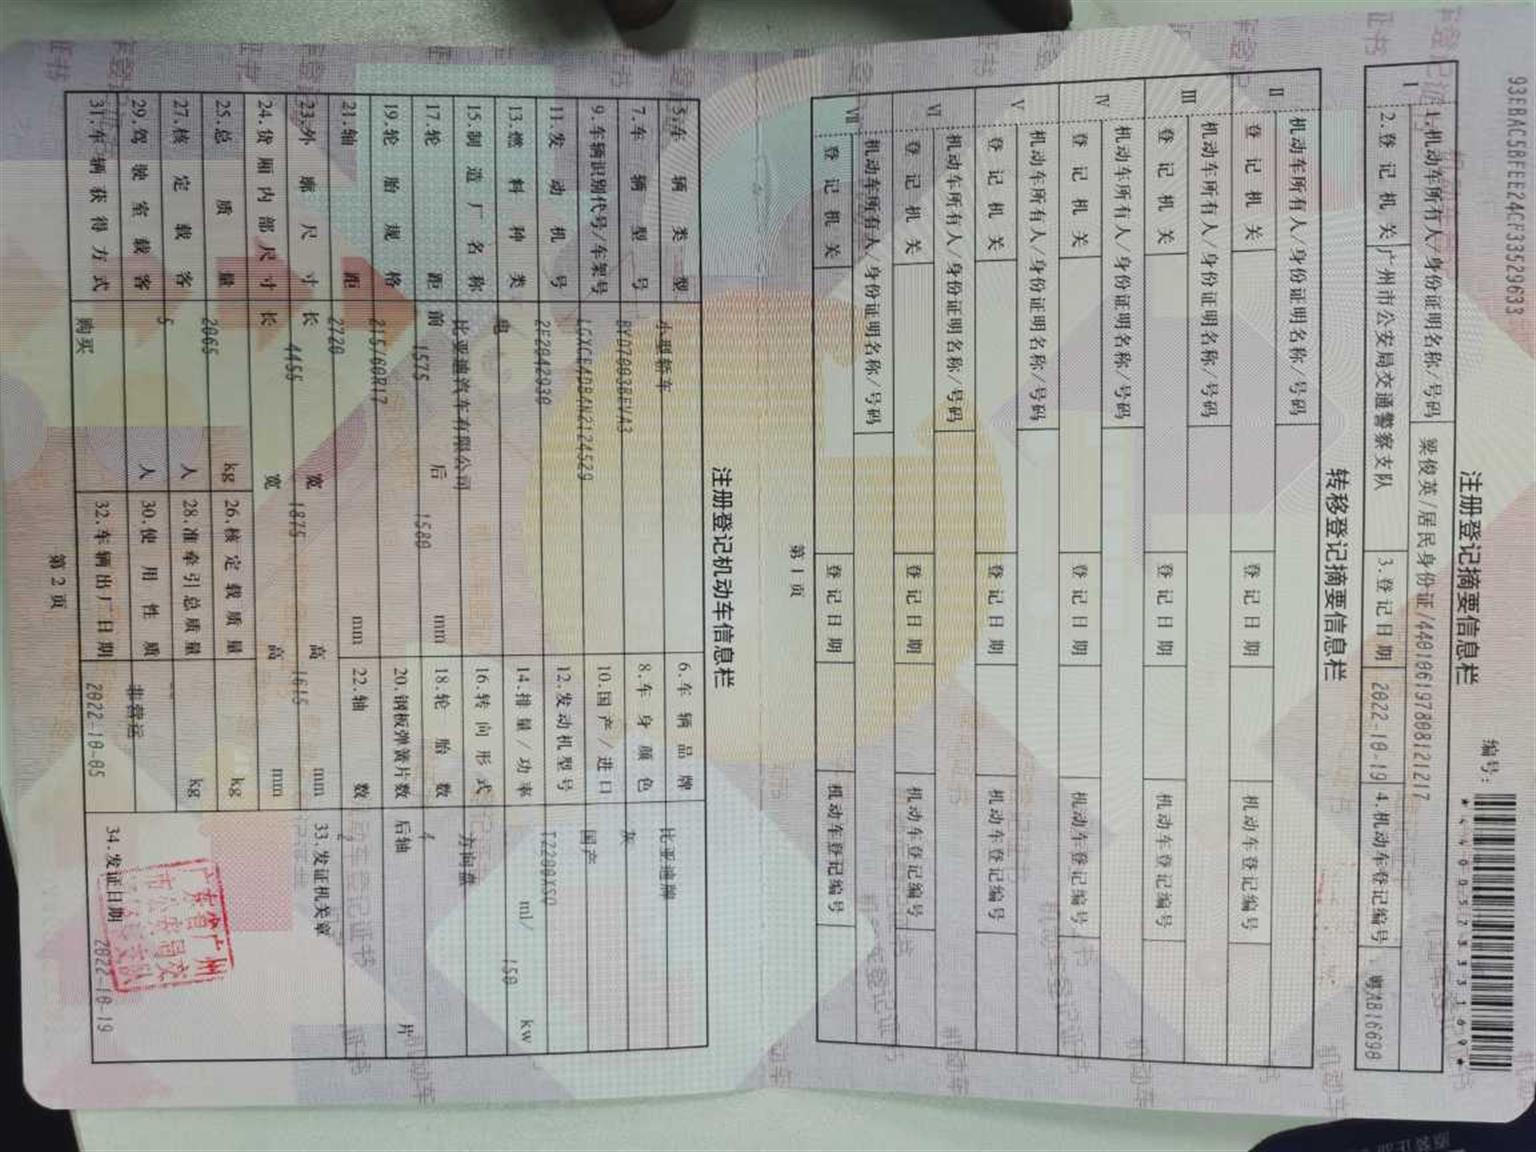 93EBAC5BFEE24CF33529633
编号：
*440057333169*
注册登记摘要信息栏
I 1.机动车所有人/身份证明名称/号码 梁俊英/居民身份证/440106197808121217
2.登记机关 广州市公安局交通警察支队 3.登记日期 2022-10-19 4.机动车登记编号 粤AB16698
转移登记摘要信息栏
II 机动车所有人/身份证明名称/号码
登记机关 登记日期 机动车登记编号
III 机动车所有人/身份证明名称/号码
登记机关 登记日期 机动车登记编号
IV 机动车所有人/身份证明名称/号码
登记机关 登记日期 机动车登记编号
V 机动车所有人/身份证明名称/号码
登记机关 登记日期 机动车登记编号
VI 机动车所有人/身份证明名称/号码
登记机关 登记日期 机动车登记编号
VII 机动车所有人/身份证明名称/号码
登记机关 登记日期 机动车登记编号
第1页
注册登记机动车信息栏
5.车辆类型 小型轿车 6.车辆品牌 比亚迪牌
7.车辆型号 BYD7003BEVA3 8.车身颜色 灰
9.车辆识别代号/车架号 LGXCE4DB4N2124529 10.国产/进口 国产
11.发动机号 2E2042030 12.发动机型号 TZ200XSQ
13.燃料种类 电 14.排量/功率 ml/ 150 kw
15.制造厂名称 比亚迪汽车有限公司 16.转向形式 方向盘
17.轮距 前 1575 后 1580 mm 18.轮胎数 4
19.轮胎规格 215/60R17 20.钢板弹簧片数 后轴 片
21.轴距 2720 mm 22.轴数 2
23.外廓尺寸 长 4455 宽 1875 高 1615 mm 33.发证机关章
24.货厢内部尺寸 长 宽 高 mm
25.总质量 2065 kg 26.核定载质量 kg
27.核定载客 5 人 28.准牵引总质量 kg
29.驾驶室载客 人 30.使用性质 非营运
31.车辆获得方式 购买 32.车辆出厂日期 2022-10-05 34.发证日期 2022-10-19
第2页